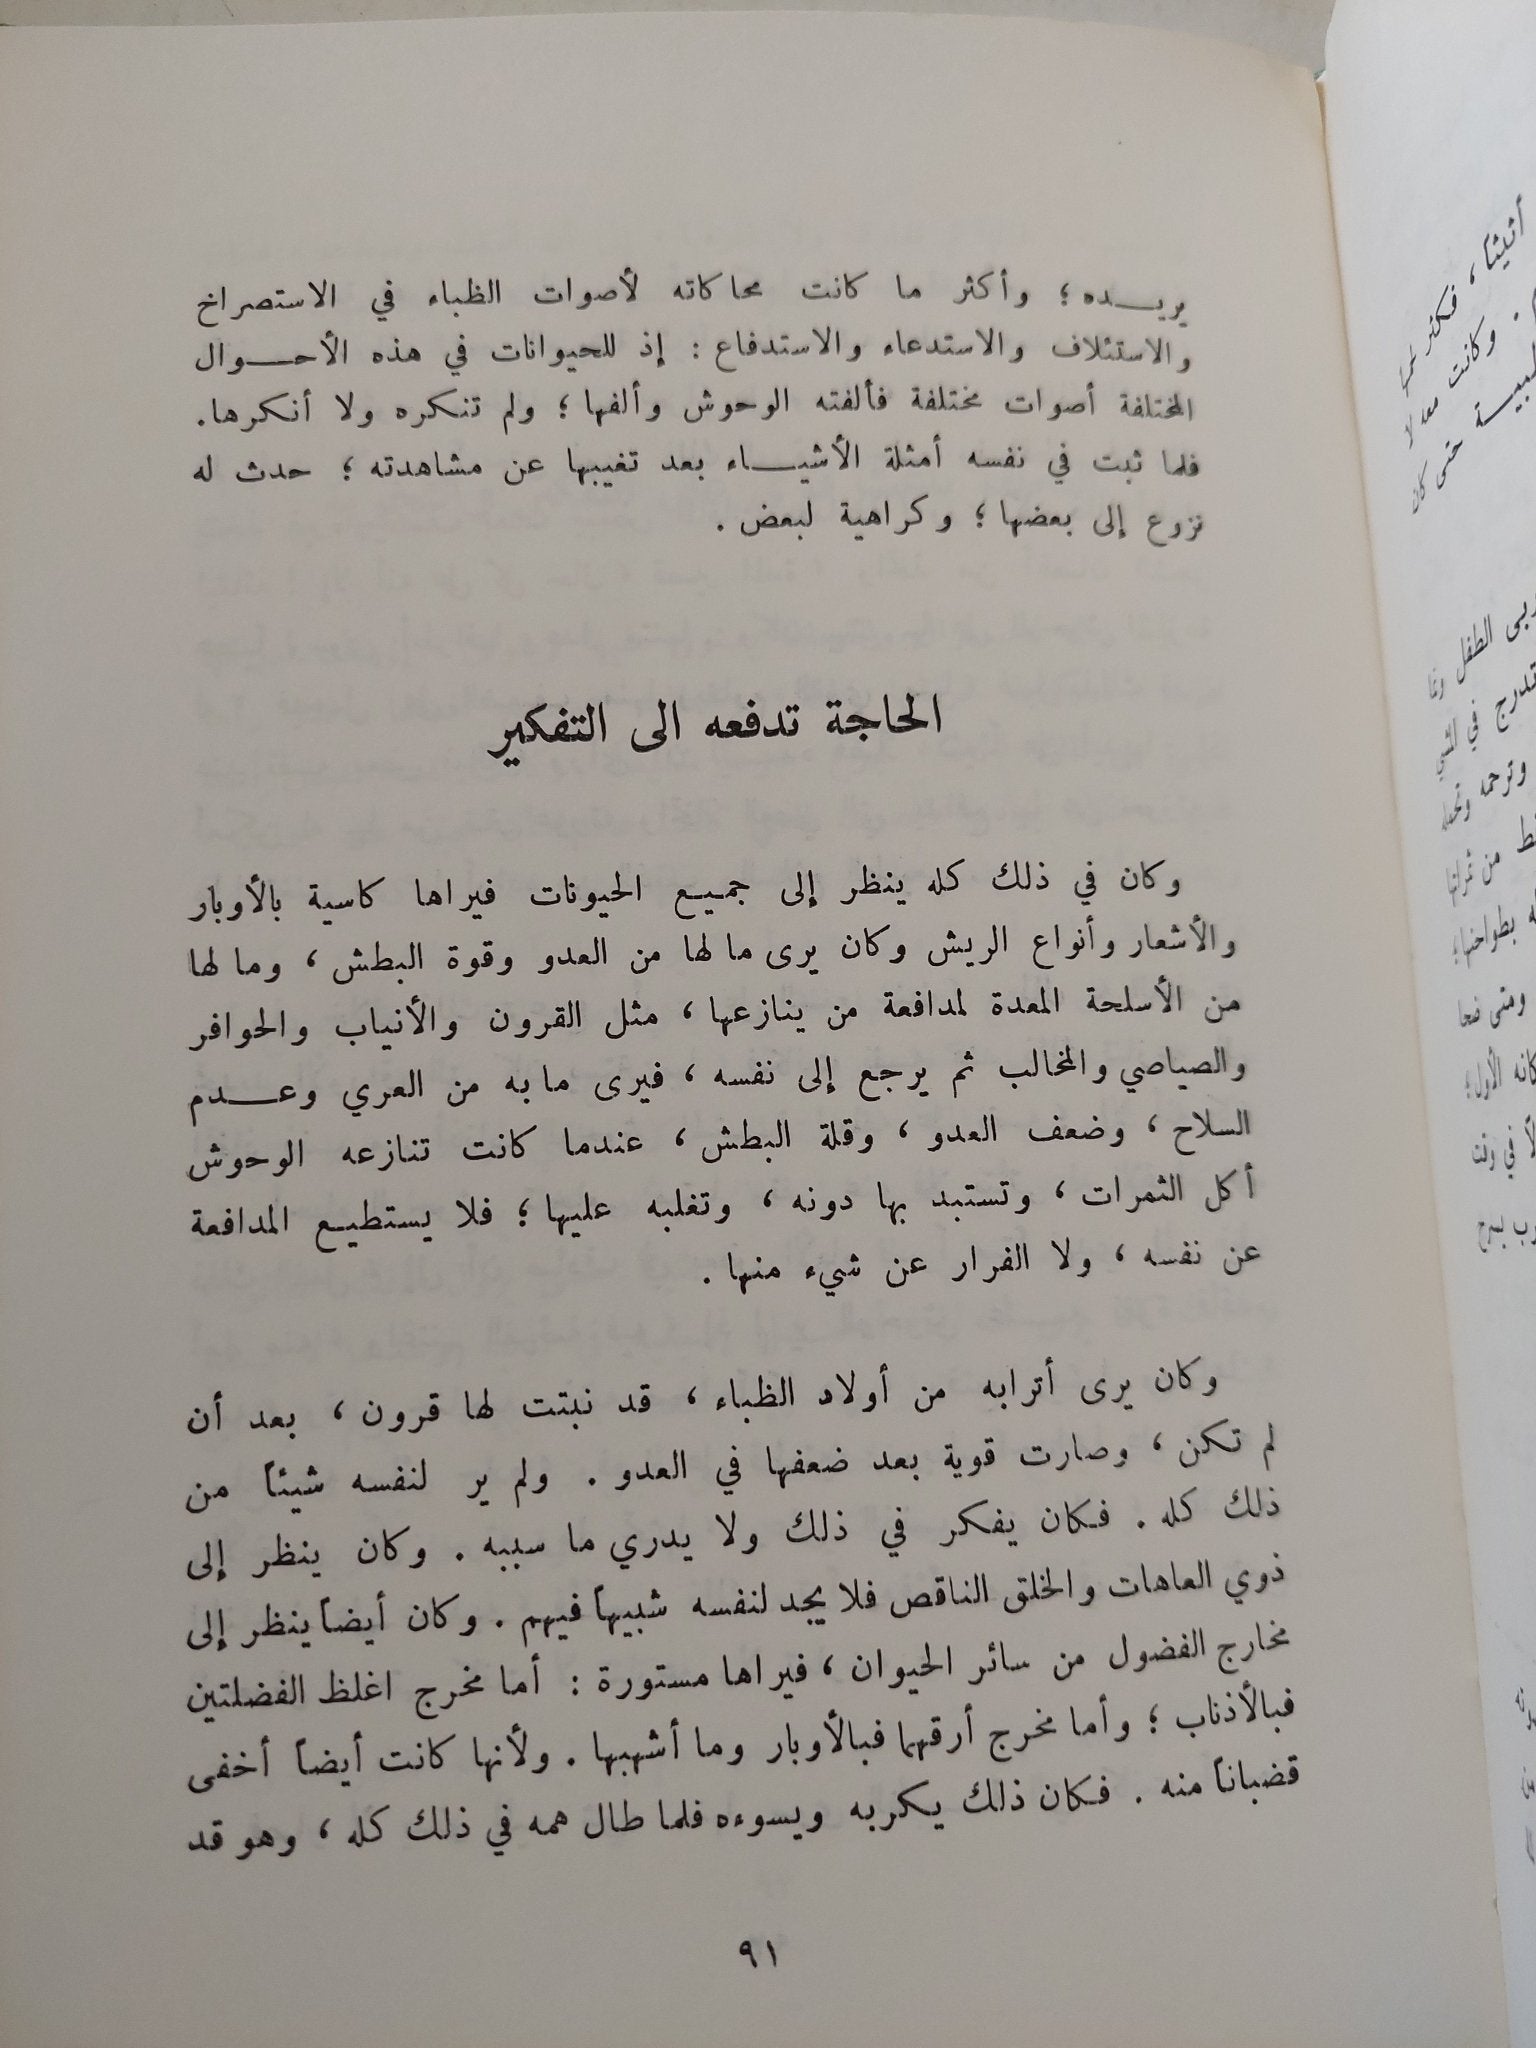 يريـــده ؛ وأكثر ما كانت محاكاته لأصوات الظباء في الاستصراخ
والاستئلاف والاستدعاء والاستدفاع : إذ للحيوانات في هذه الأحـــوال
المختلفة أصوات مختلفة فألفته الوحوش وألفها ؛ ولم تنكره ولا أنكرها .
فلما ثبت في نفسه أمثلة الأشيـــاء بعد تغيبها عن مشاهدته ؛ حدث له
نزوع إلى بعضها ؛ وكراهية لبعض .
الحاجة تدفعه الى التفكير
وكان في ذلك كله ينظر إلى جميع الحيونات فيراها كاسية بالأوبار
والأشعار وأنواع الريش وكان يرى ما لها من العدو وقوة البطش ، وما لها
من الأسلحة المعدة لمدافعة من ينازعها ، مثل القرون والأنياب والحوافر
والصياصي والمخالب ثم يرجع إلى نفسه ، فيرى ما به من العري وعـــدم
السلاح ، وضعف العدو ، وقلة البطش ، عندما كانت تنازعه الوحوش
أكل الثمرات ، وتستبد بها دونه ، وتغلبه عليها ؛ فلا يستطيع المدافعة
عن نفسه ، ولا الفرار عن شيء منها .
وكان يرى أترابه من أولاد الظباء ، قد نبتت لها قرون ، بعد أن
لم تكن ، وصارت قوية بعد ضعفها في العدو . ولم ير لنفسه شيئاً من
ذلك كله . فكان يفكر في ذلك ولا يدري ما سببه . وكان ينظر إلى
ذوي العاهات والخلق الناقص فلا يجد لنفسه شبيهاً فيهم . وكان أيضاً ينظر إلى
مخارج الفضول من سائر الحيوان ، فيراها مستورة : أما مخرج اغلظ الفضلتين
فبالأذناب ؛ وأما مخرج أرقهما فبالأوبار وما أشهبها . ولأنها كانت أيضاً أخفى
قضباناً منه . فكان ذلك يكربه ويسوءه فلما طال همه في ذلك كله ، وهو قد
٩١
أثيثاً ، فكثر لحمها
وكانت معه لا
حتى كان
ربى الطفل ونما
تدرج في المشي
وترحمه وتحمله
من ثمراتها
بطواحنها ؛
ومتى ضحا
كانه الأول ؛
في وقت
يسرح